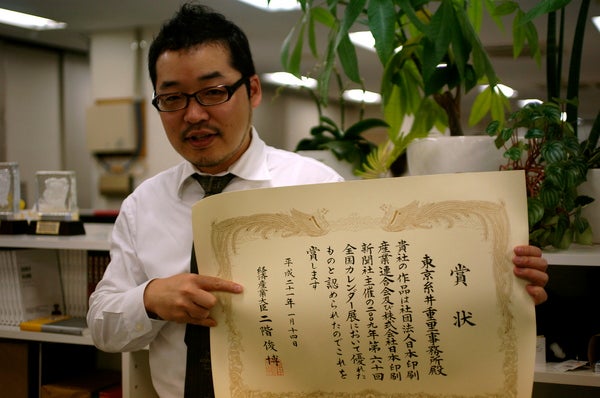 賞状
東京糸井重里事務所殿
貴社の作品は社団法人日本印刷
産業連合会及び株式会社日本印刷
新聞社主催の二〇〇九年第六十回
全国カレンダー展において優れた
ものと認められたのでこれを
賞します
平成二十一年一月十四日
経済産業大臣 二階俊博